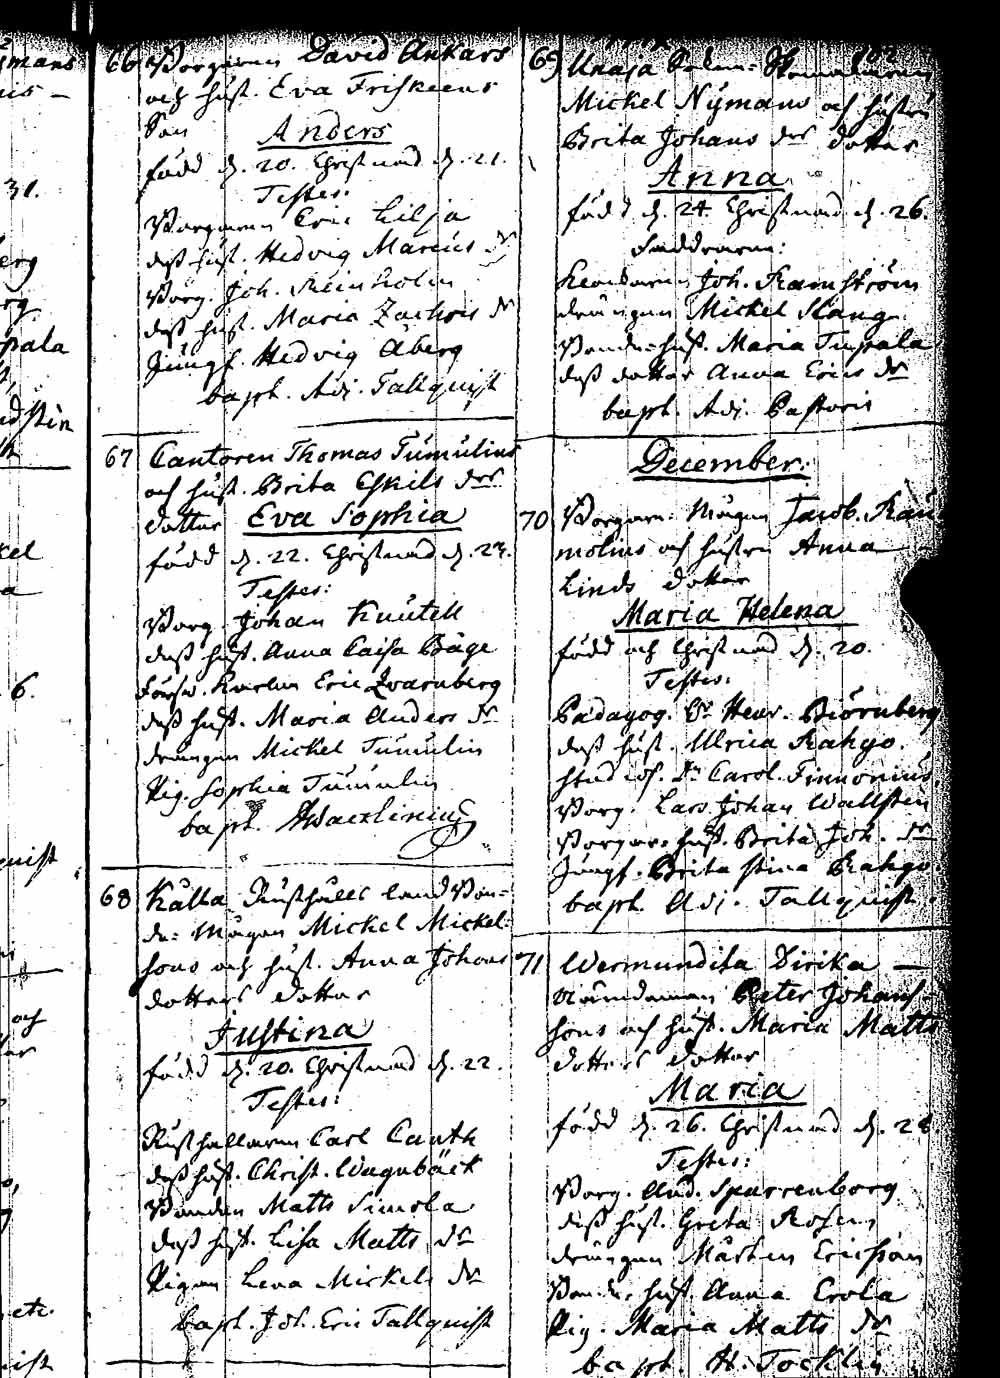 66 Borgaren David Ankars
och hust. Eva Friskeens
Son
Anders
född d. 20. Christnad d. 21.
Testes:
Borgaren Eric Lilja
dess hust. Hedvig Marcus dr
Borg. Joh. Reinholm
dess hust. Maria Zachris dr
Jungf. Hedvig Åberg
bapt. Adj. Tallquist
67 Cantoren Thomas Tumulius
och hust. Brita Eskils drs
dotter Eva Sophia
född d. 22. Christnad d. 23.
Testes:
Borg. Johan Knutell
dess hust. Anna Caisa Båge
Eric Zvarnberg
dess hust. Maria Anders dr
drängen Mickel Tumulin
Pig. Sophia Tumulin
bapt.
68 Kålla Rusthålls land Bon-
de: Mågen Mickel Mickel-
sons och hust. Anna Johans
dotters dotter
Justina
född d. 20. Christnad d. 22.
Testes:
Rusthållaren Carl Canth
dess hust. Christ. Wagnbäck
Bonden Matts Simola
dess hust. Lisa Matts dr
Pigan Lena Mickels dr
bapt. Joh. Eric Tallquist
69 Unaja
Mickel Nymans och hustru
Brita Johans drs dotter
Anna
född d. 24. Christnad d. 26.
Faddrarne:
Joh. Ramström
drängen Mickel Stang
Bonde-hust. Maria Tuspala
dess dotter Anna Erics dr
bapt. Adj. Pastoris
December.
70 Borgare: Mågen Jacob Rau-
molins och hustru Anna
Linds dotter
Maria Helena
född och Christnad d. 20.
Testes:
Pædagog. Dr Henr. Biörnberg
dess hust. Ulrica Kahgo.
studios. Dr Carol. Finnonius
Borg. Lars Johan Wallsten
Borgare hust. Brita Joh. dr
Jungf. Brita Stina
bapt. Adj. Tallquist.
71 Wermundila Dirika —
Nämdeman Peter Johans-
sons och hust. Maria Matts
dotters dotter
Maria
född d. 26. Christnad d. 28
Testes:
Borg. And. Sparrenborg
dess hust. Greta Rosens
drängen Mårten Ericsson
Bonde-hust. Anna Erola
Pig. Maria Matts dr
bapt. H. Tocklin